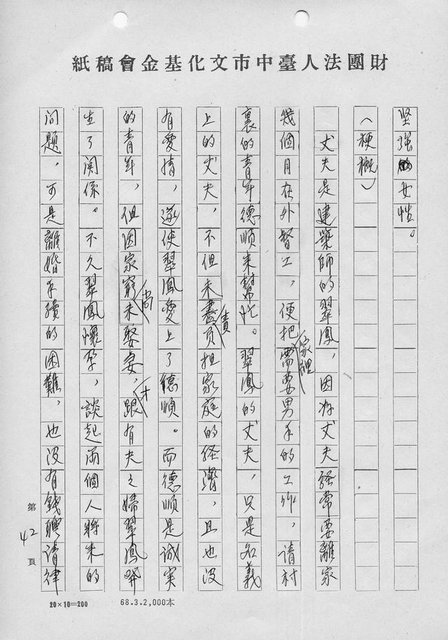 財團法人臺中市文化基金會稿紙
堅強的女性。
(梗概)
丈夫是建築師的翠鳳，因為丈夫經常要離家
幾個月在外督工，便把家裡需要男手的工作，請村
裏的青年德順來幫忙。翠鳳的丈夫，只是名義
上的丈夫，不但未盡責負担家庭的經濟，且也沒
有愛情，遂使翠鳳愛上了德順。而德順是誠實
的青年，但因家窮尚未娶妻，才跟有夫之婦翠鳳發
生了關係。不久翠鳳懷孕，談起兩個人將來的
問題，可是離婚手續的困難，也沒有錢聘請律
第42頁
20×10=200
68.3.2,000本